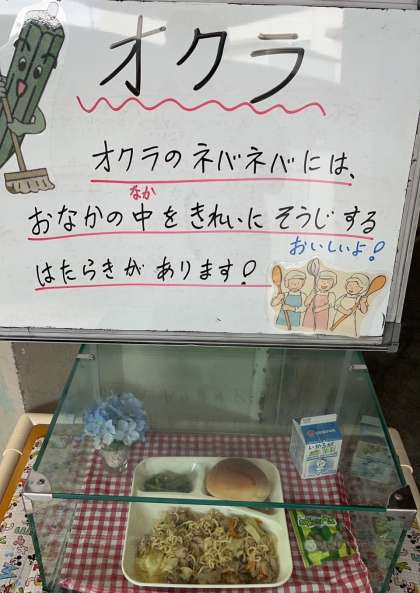 オクラ
オクラのネバネバには、
おなかの中をきれいにそうじする
なか
おいしいよ!
はたらきがあります!